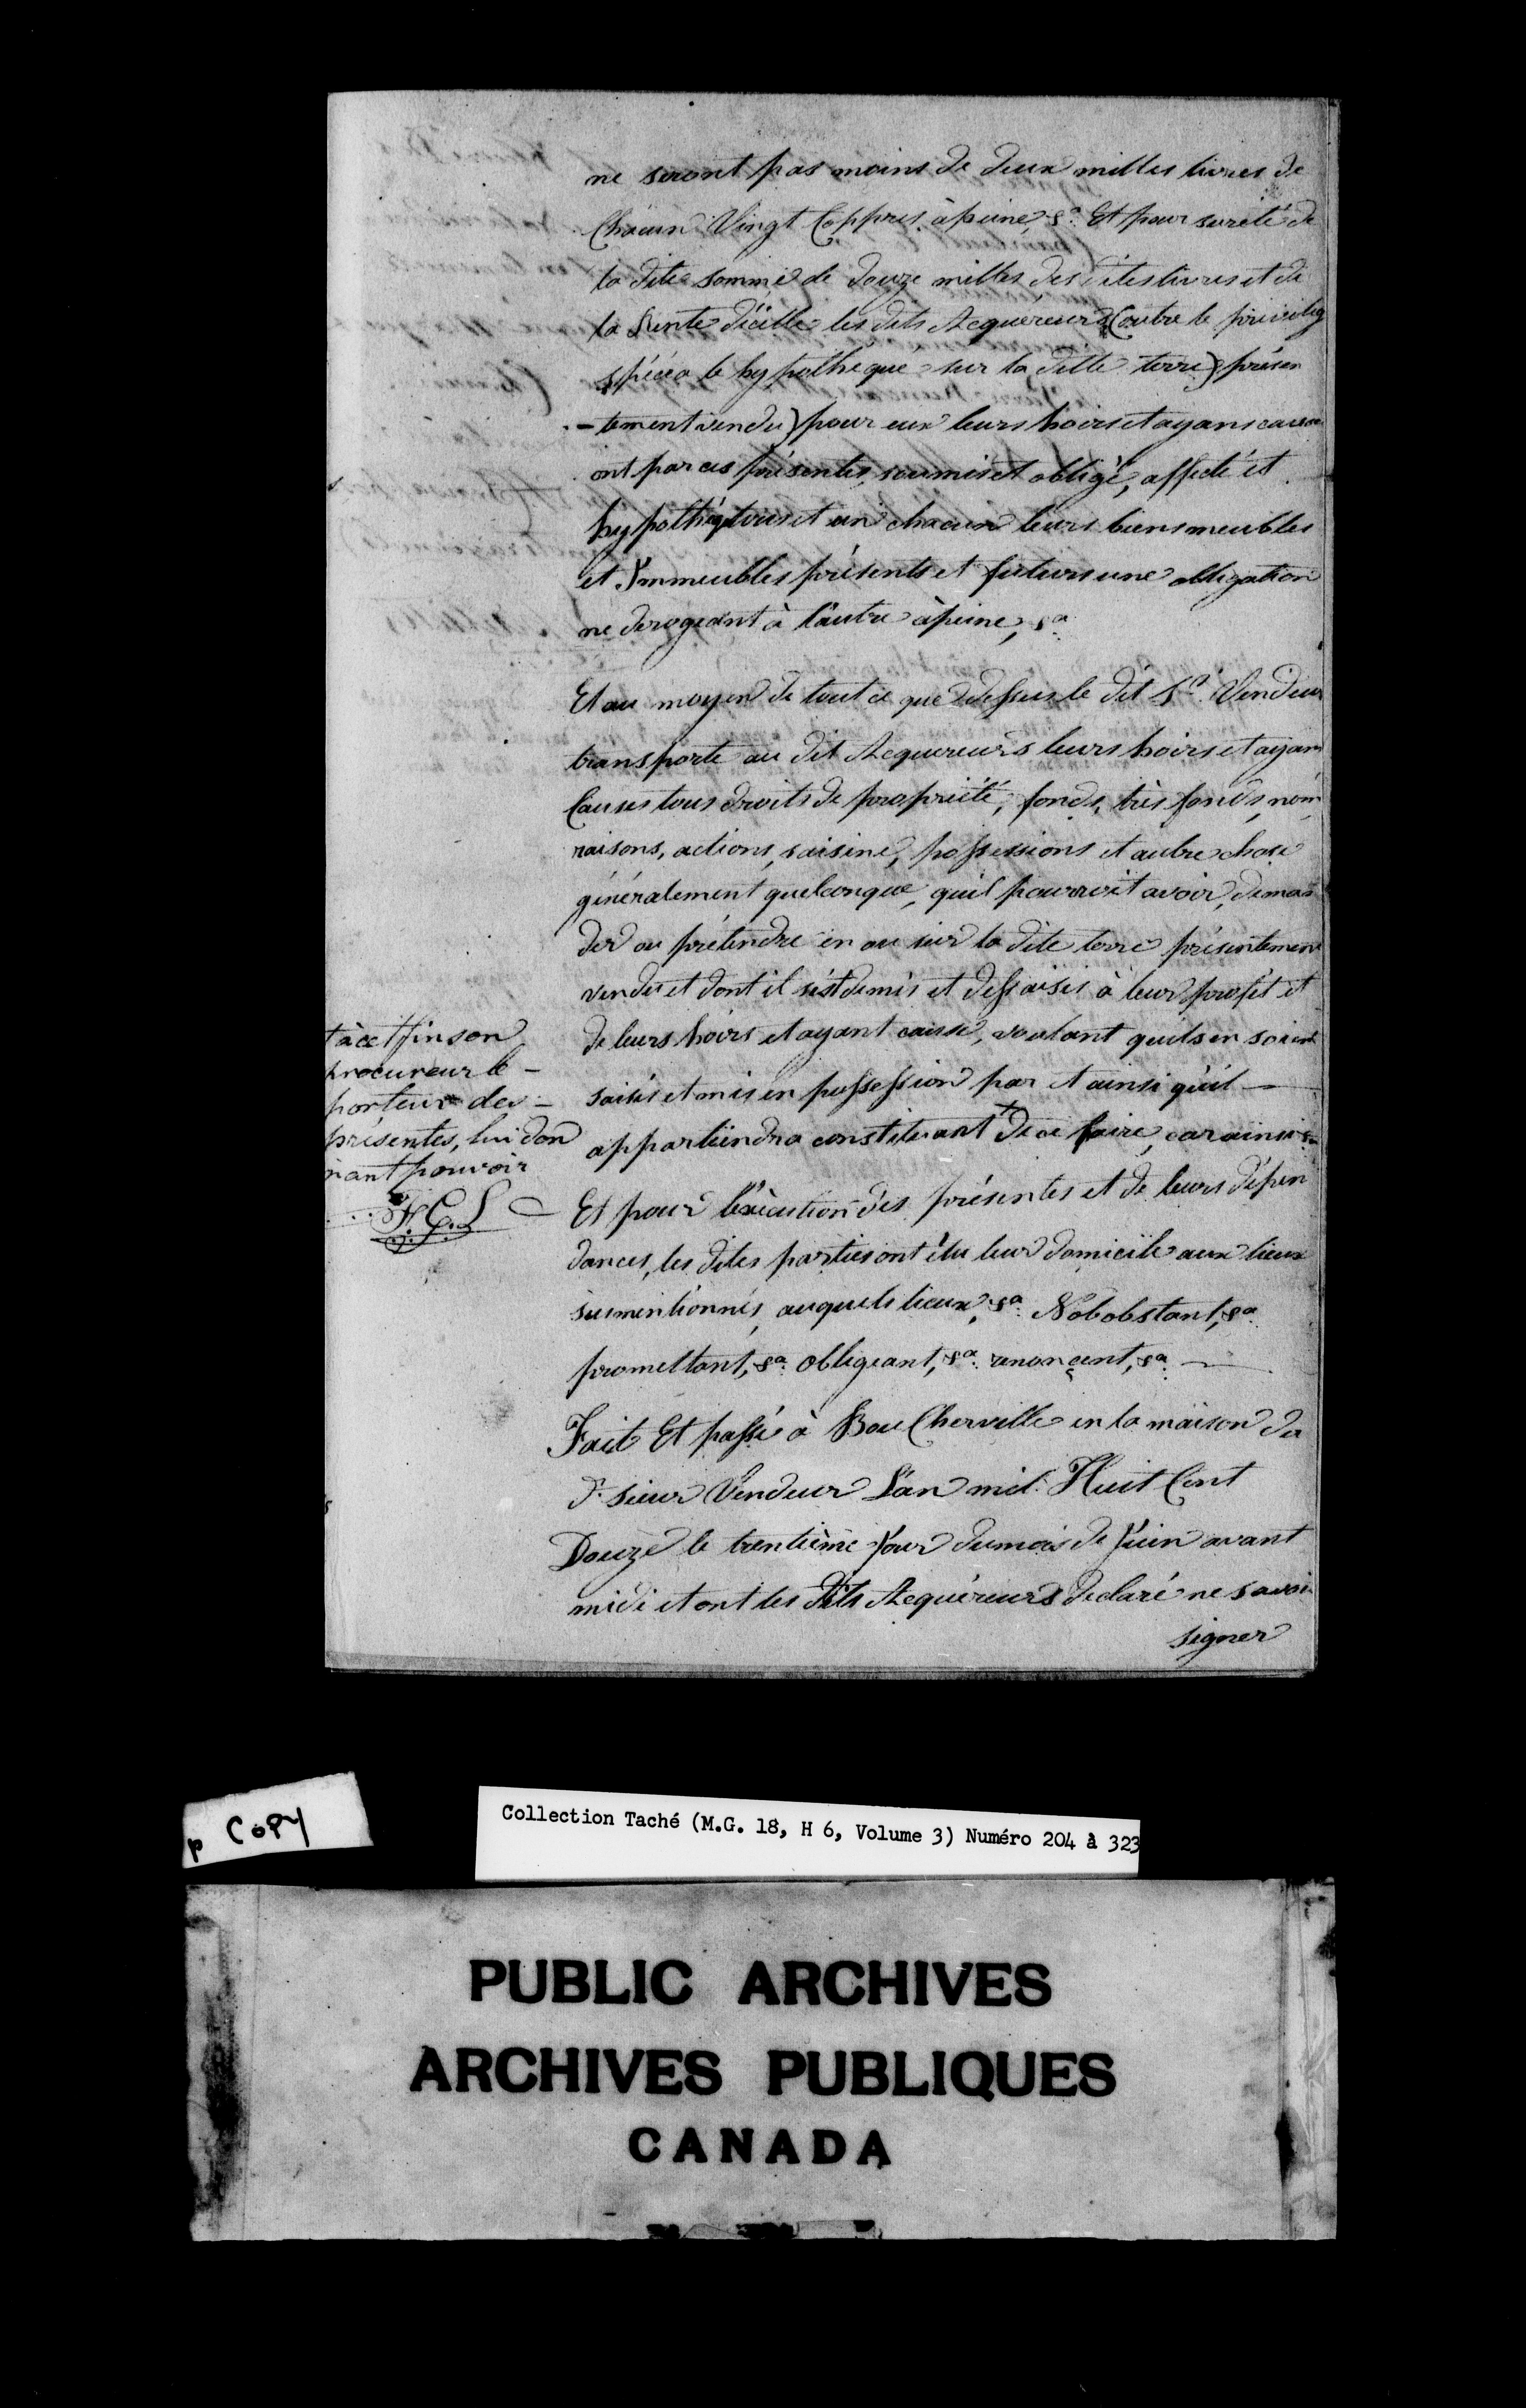 ne seront pas moins de deux milles livres de
Chacun Vingt Coppres, à peine, &a. Et pour sureté de
la dite somme de douze milles des dites livres et de
la Rente d'icelle les dits Acquéreurs (outre le privileg
spécia le hypothéque sur la ditte terre) présen
-tement vendu) pour eux leurs hoirs et ayans cause
ont par ces présentes, soumis et obligé, affecté et
hypothéq tous et un chacun leurs biens meubles
et Immeubles présents et futurs une obligation
ne derogeant à l'autre à peine, &a.
Et au moyen de tout ce que dessus le dit Sr. Vendeur
transporte au dit Acquereurs leurs hoirs et ayans
Causes tous droits de propriété, fonds, très fonds, nom
raisons, actions, saisine, possessions et autre chose
généralement quelconque, qu'il pourroit avoir, deman
der ou prétendre en ou sur la dite terre présentement
vendu et dont il s'est demis et dessaisis à leur profit et
de leurs hoirs et ayant cause, voulant qu'ils en soient
saisis et mis en possession par et ainsi qu'il —
appartiendra constituant + de ce faire, car ainsi &a
t à cet fin son
procureur le -
porteur des -
présentes, lui don
nant pouvoir
F.G.L
Et pour l'éxécution des présentes et de leurs dépen
dances, les dites parties ont élu leur domicile aux lieux
susmentionnés, auquels lieux, &a. Nobobstant, &a.
promettant, &a. Obligeant, &a. renonçent, &a. —
Fait Et passé à BouCherville en la maison du
d. sieur Vendeur L'an mil Huit Cent
Douze le trentième Jour du mois de Juin avant
midi et ont les dits Acquéreurs déclaré ne savoir
signer
p Copy
Collection Taché (M.G. 18, H 6, Volume 3) Numéro 204 à 323
PUBLIC ARCHIVES
ARCHIVES PUBLIQUES
CANADA